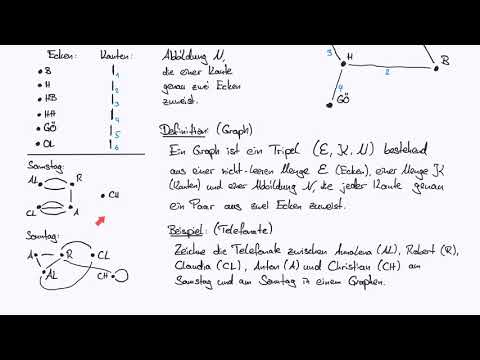 Ecken: Kanten:
B 1
H 2
HB 3
HH 4
GÖ 5
OL 6
Abbildung N,
die einer Kante
genau zwei Ecken
zuweist.
3 H 2 B
4
GÖ
Definition: (Graph)
Ein Graph ist ein Tripel (E, K, N) bestehend
aus einer nicht-leeren Menge E (Ecken), einer Menge K
(Kanten) und einer Abbildung N, die jeder Kante genau
ein Paar aus zwei Ecken zuweist.
Samstag:
AL R
CH
CL A
Sonntag:
A R CL
AL CH
Beispiel: (Telefonate)
Zeichne die Telefonate zwischen Annalena (AL), Robert (R),
Claudia (CL), Anton (A) und Christian (CH) am
Samstag und am Sonntag in einem Graphen.